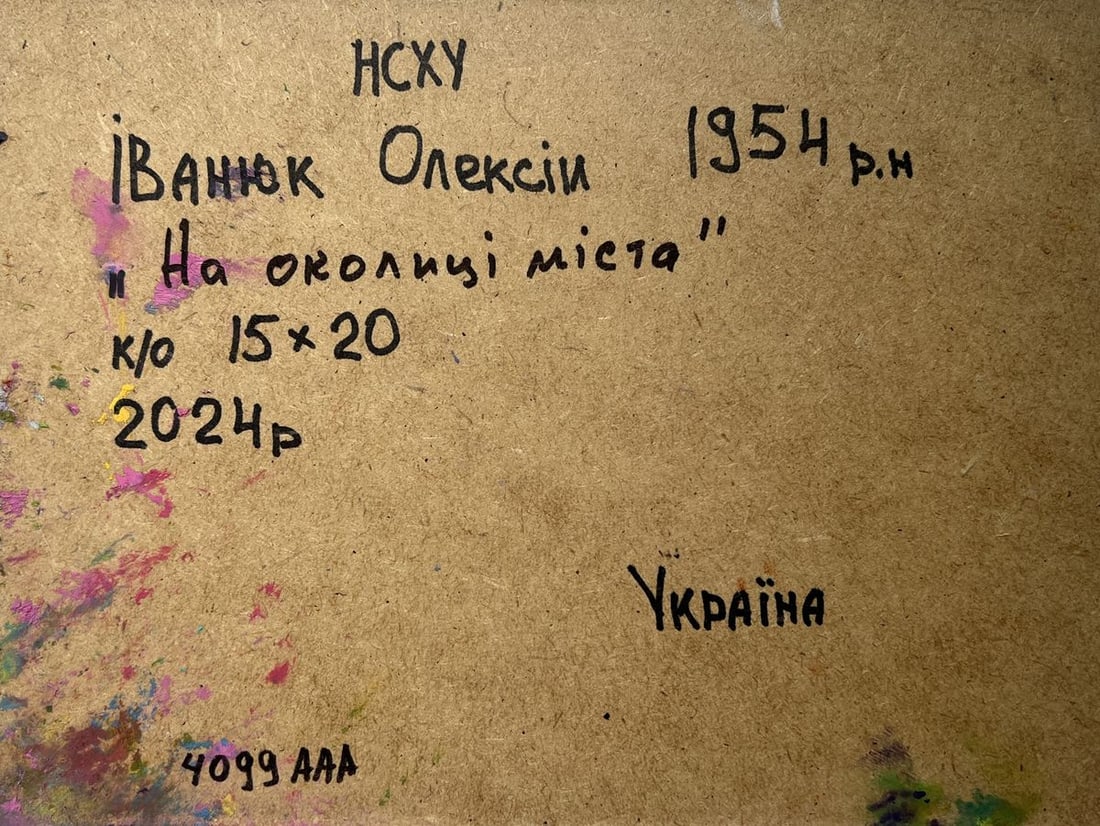 НСХУ
Іванюк Олексій 1954 р.н
„ На околиці міста"
к/о 15×20
2024р
Україна
4099 ААА